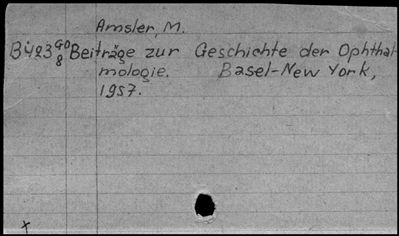 Amsler, M.
Beiträge zur Geschichte der Ophthal-
mologie. Basel-New York,
1957.
x